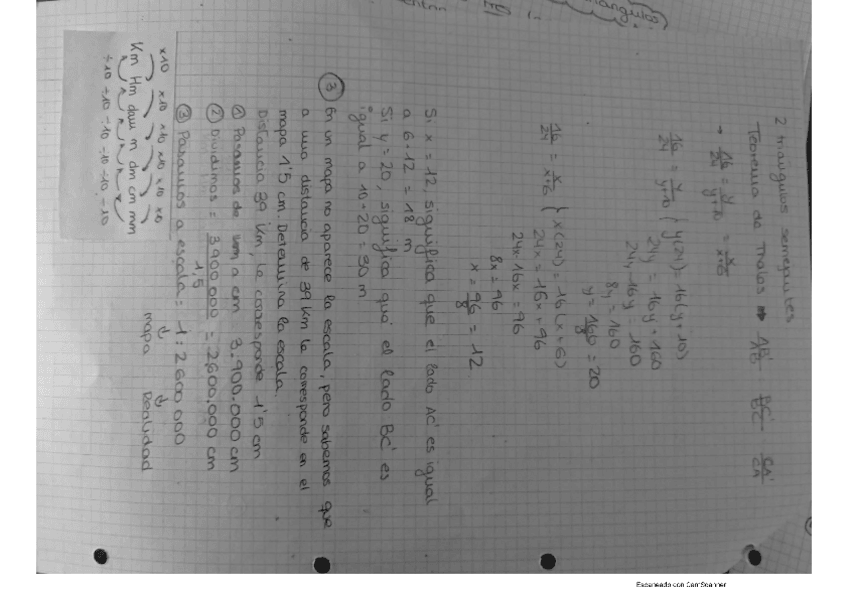 2 triángulos semejantes
Teorema de Thales ➡ AB'/AB - BC'/BC - CA'/CA
→ 16/24 = y/y+10 = x/x+6
16/24 = y/y+10 { y(24) = 16(y+10)
24y = 16y + 160
24y - 16y = 160
8y = 160
y = 160/8 = 20
16/24 = x/x+6 { x(24) = 16(x+6)
24x = 16x + 96
24x - 16x = 96
8x = 96
x = 96/8 = 12
Si x = 12, significa que el lado AC' es igual
a 6 + 12 = 18 m
Si y = 20, significa que el lado BC' es
igual a 10 + 20 = 30 m
③ En un mapa no aparece la escala, pero sabemos que
a una distancia de 39 Km le corresponde en el
mapa 1'5 cm. Determina la escala.
Distancia 39 Km, le corresponde 1'5 cm
① Pasamos de km a cm = 3.900.000 cm
② Dividimos = 3900.000/1,5 = 2600.000 cm
③ Pasamos a escala = 1 : 2600.000
mapa Realidad
x10 x10 x10 x10 x10 x10
Km Hm dam m dm cm mm
÷10 ÷10 ÷10 ÷10 ÷10 ÷10
Escaneado con CamScanner